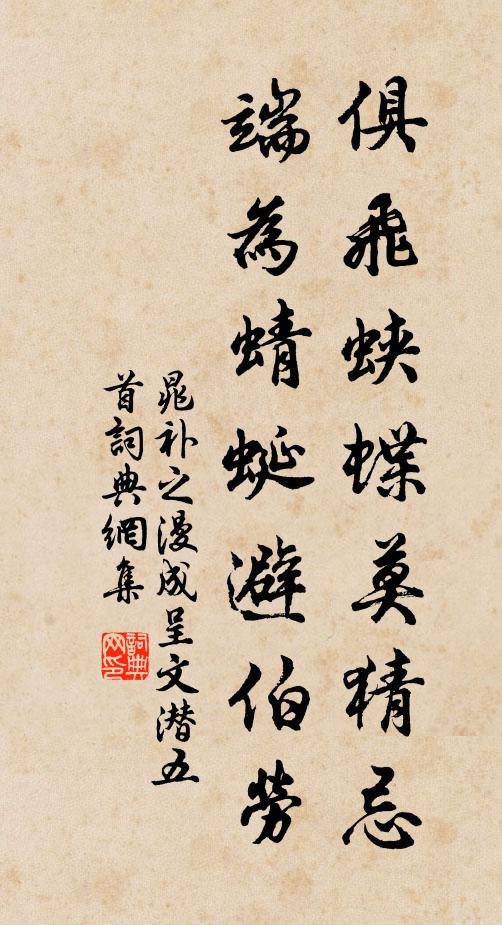 俱飛蛺蝶莫猜忌
端為蜻蜓避伯勞
晁补之漫成呈文潜五
首詞典網集
詞典
网印